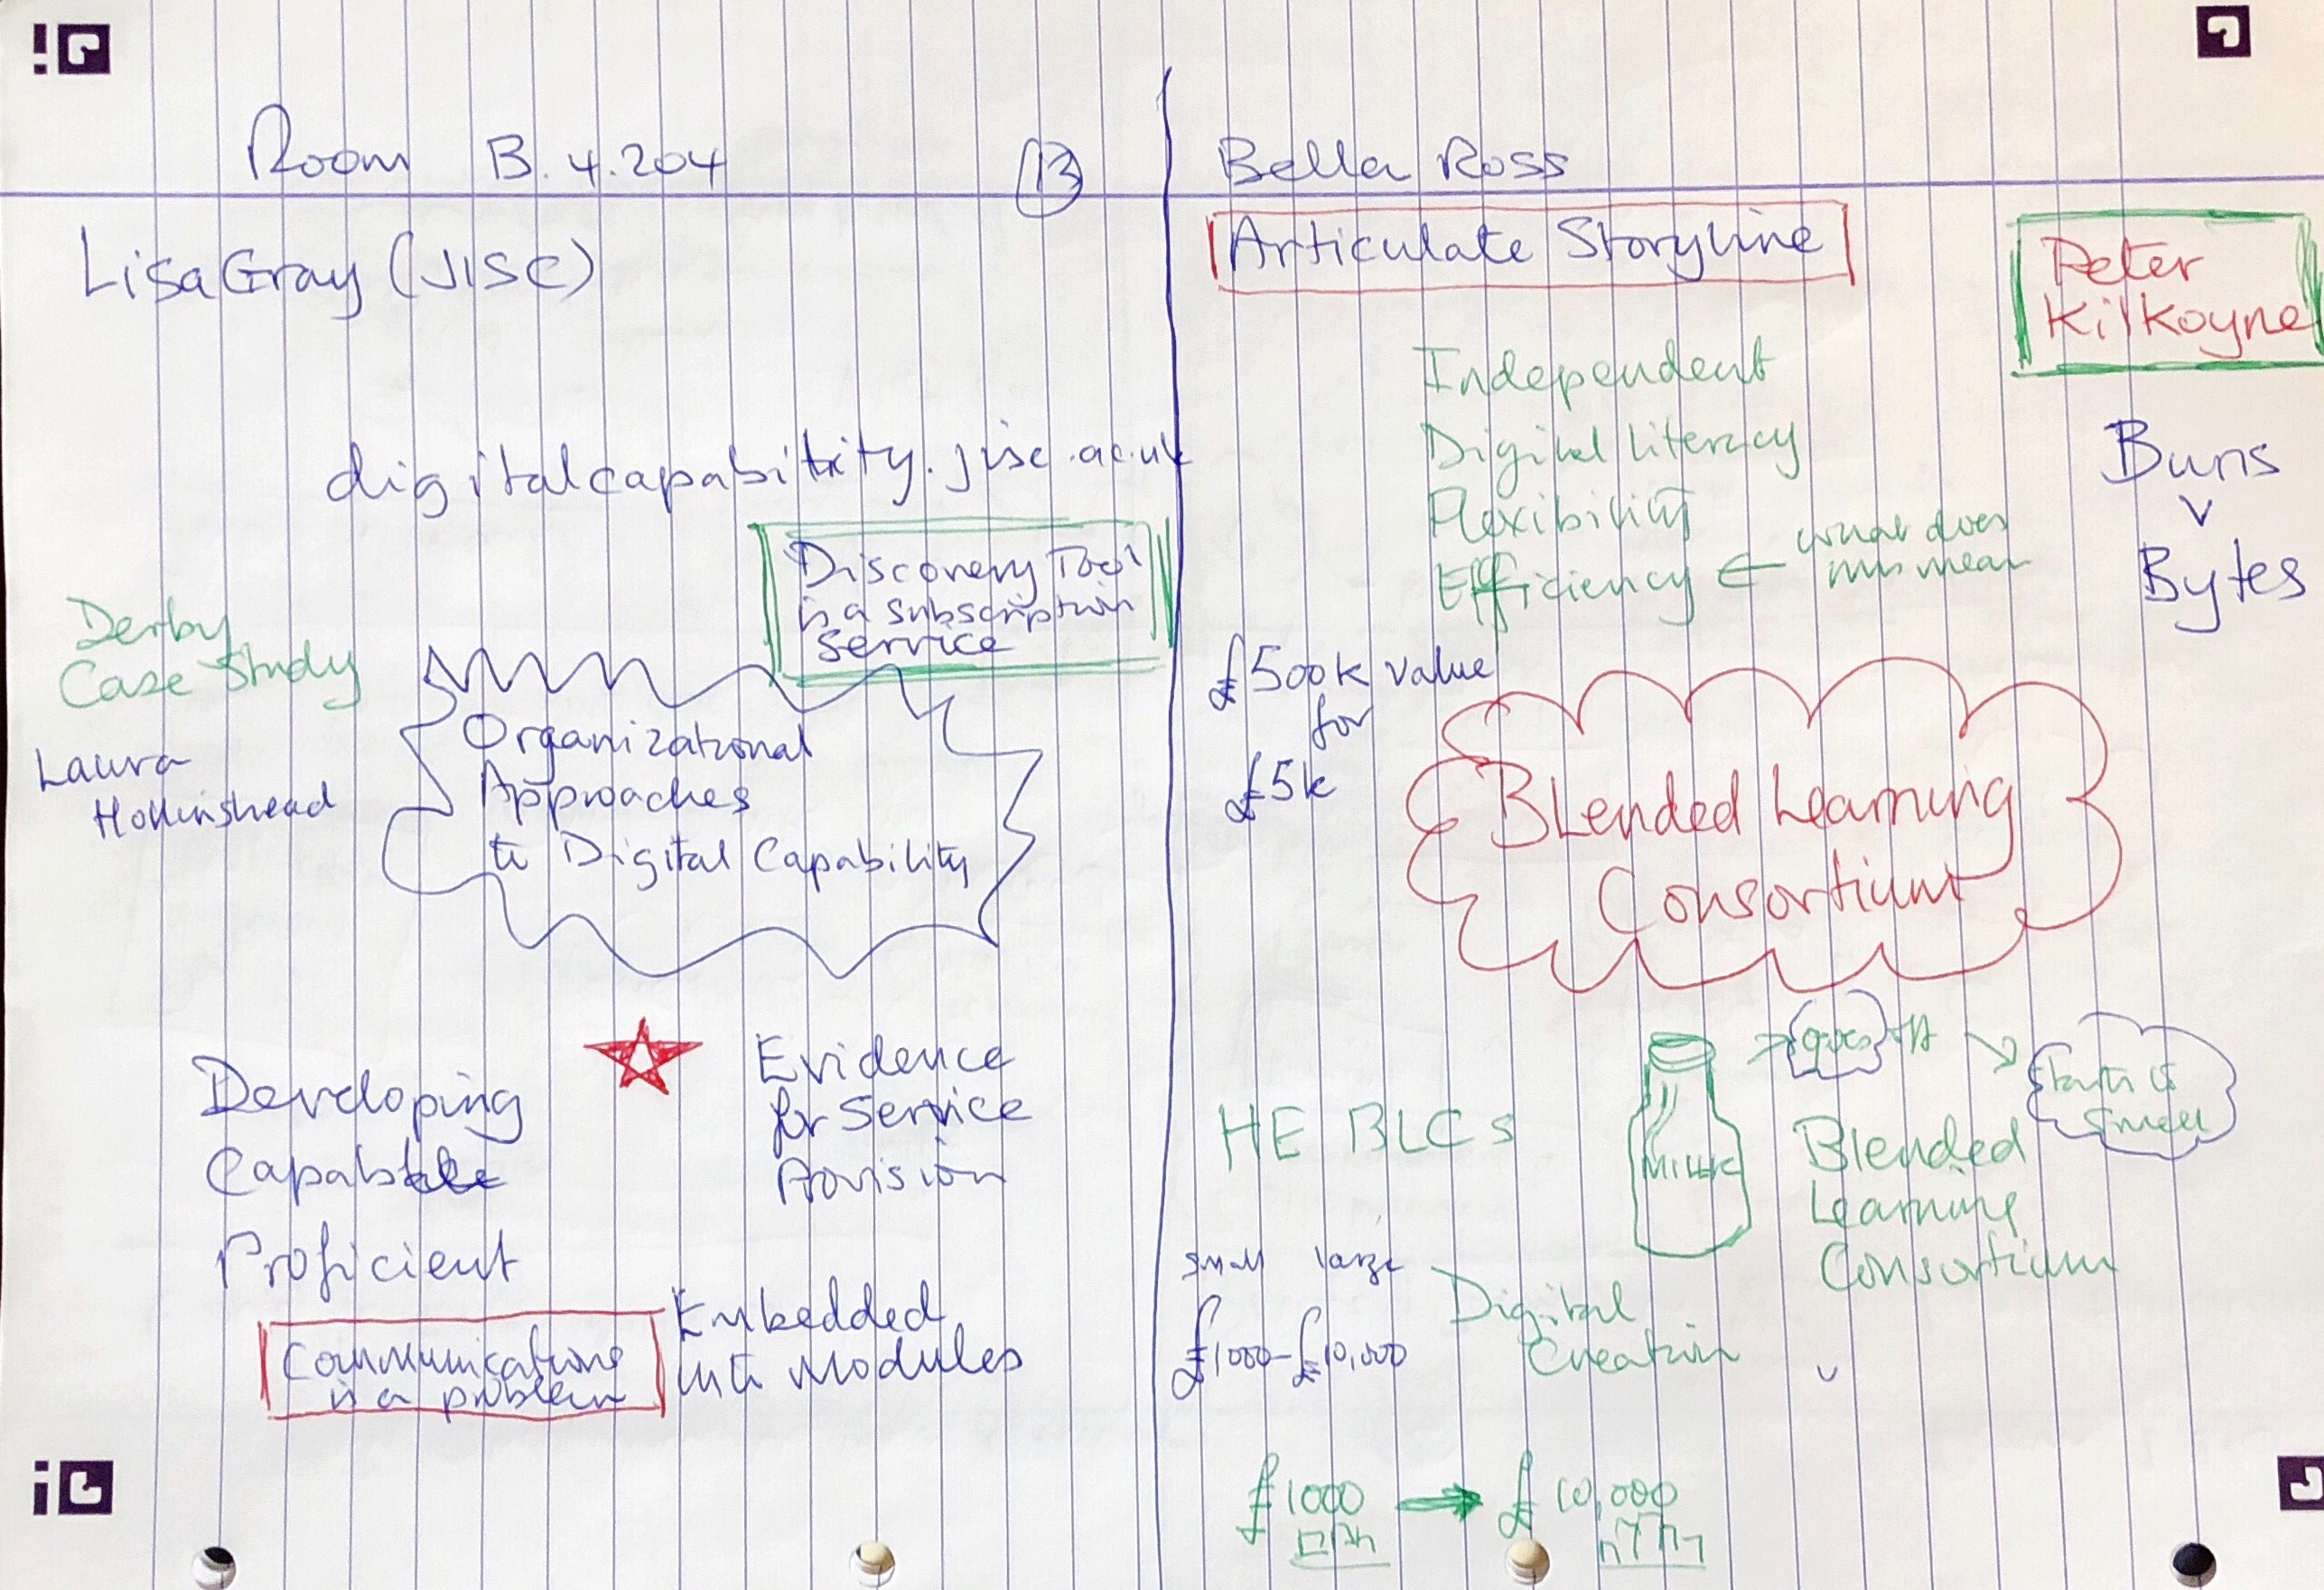 Room B.4.204
13
Lisa Gray (JISC)
digitalcapability.jisc.ac.uk
Discovery Tool
is a subscription
service
Derby
Case Study
Laura
Hollinshead
Organizational
Approaches
to Digital Capability
Developing
Capable
Proficient
Evidence
for Service
Provision
Communications
is a problem
Embedded
into Modules
Bella Ross
Articulate Storyline
Peter
Kilkoyne
Independent
Digital literacy
Flexibility
Efficiency ← what does
this mean
Buns
v
Bytes
£500k value
for
£5k
Blended Learning
Consortium
goes off
starts to
smell
HE BLCs
MILK
Blended
Learning
Consortium
small large
£1000-£10,000
Digital
Creation
£1000 → £10,000